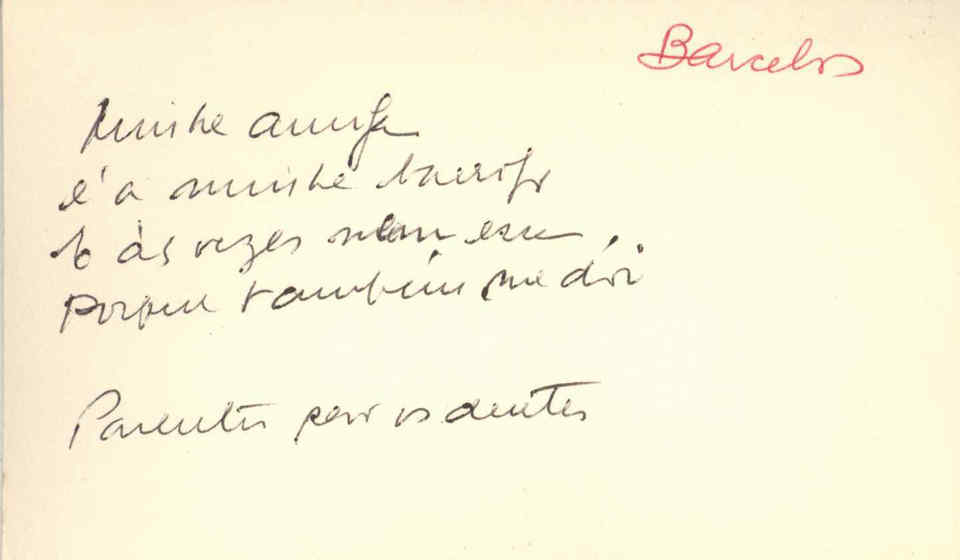 Barcelos
Minha amiga
é a minha barriga
e às vezes nem essa,
porque também me dói
Parentes são os dentes